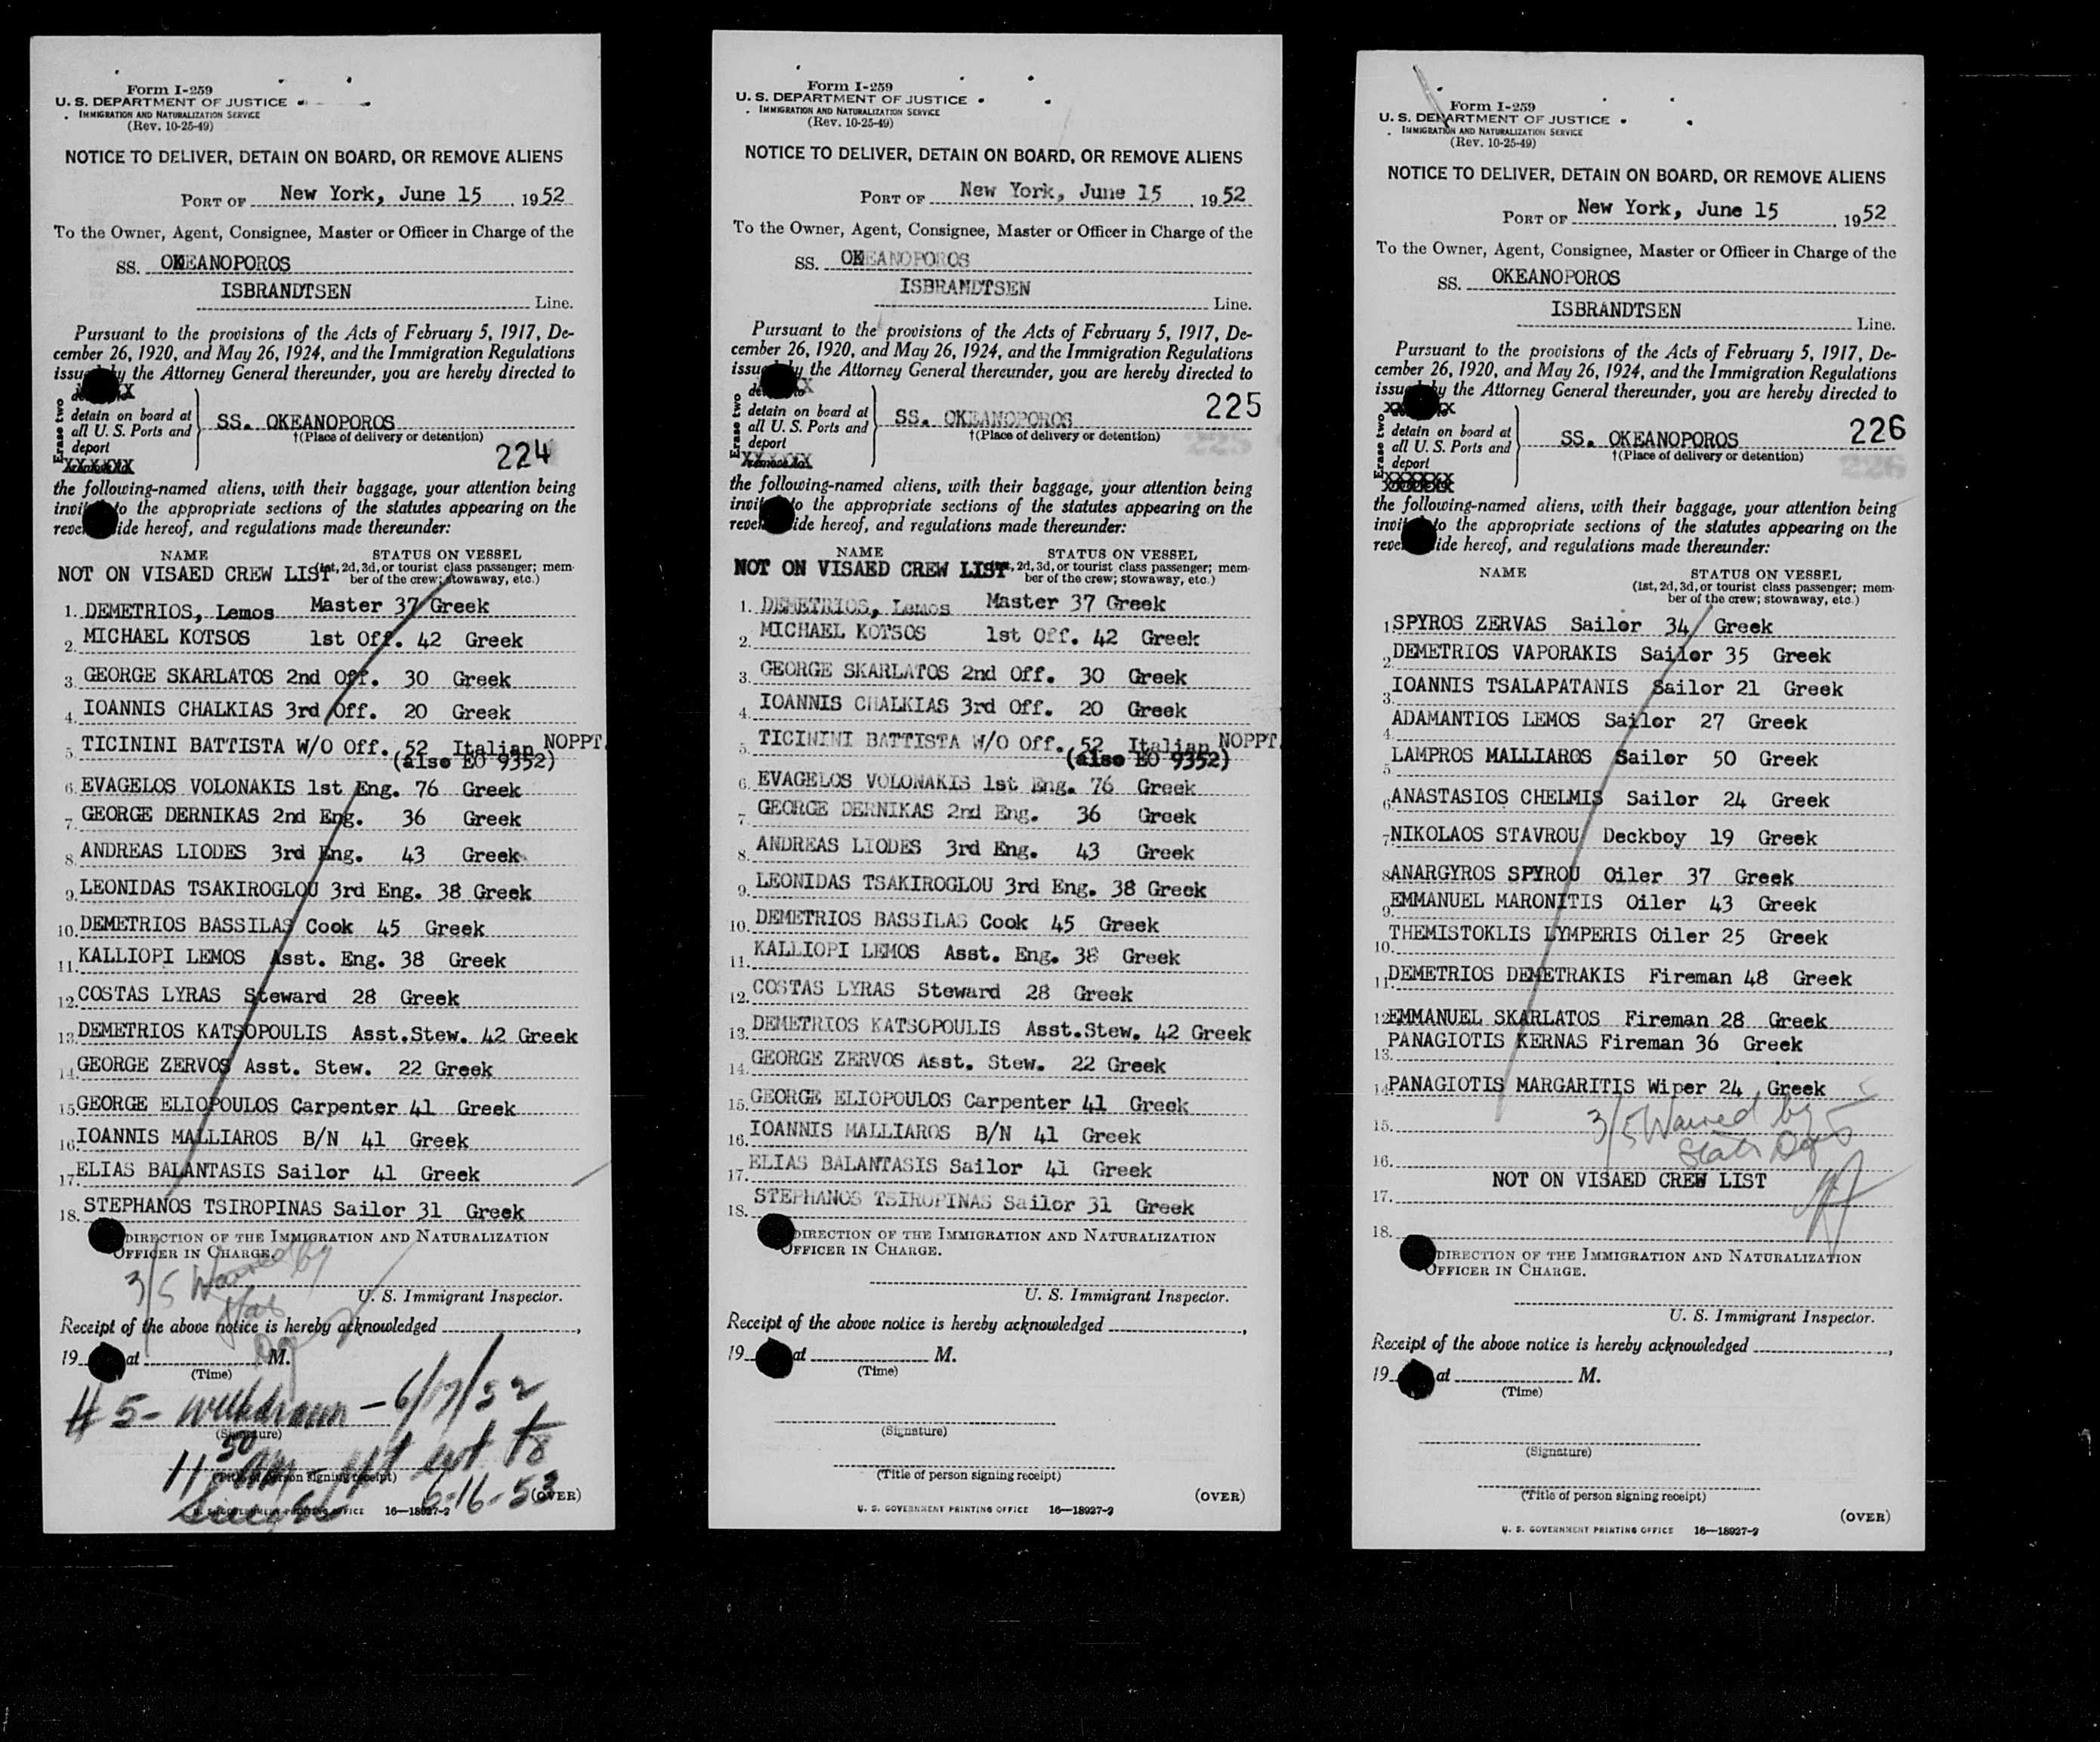 Form I-259
U. S. DEPARTMENT OF JUSTICE
IMMIGRATION AND NATURALIZATION SERVICE
(Rev. 10-25-49)
NOTICE TO DELIVER, DETAIN ON BOARD, OR REMOVE ALIENS
PORT OF New York, June 15, 1952
To the Owner, Agent, Consignee, Master or Officer in Charge of the
SS. OKEANOPOROS
ISBRANDTSEN Line.
Pursuant to the provisions of the Acts of February 5, 1917, De-
cember 26, 1920, and May 26, 1924, and the Immigration Regulations
issued by the Attorney General thereunder, you are hereby directed to
Erase two
detain on board at
all U. S. Ports and
deport
SS. OKEANOPOROS
†(Place of delivery or detention)
224
the following-named aliens, with their baggage, your attention being
to the appropriate sections of the statutes appearing on the
hereof, and regulations made thereunder:
NAME STATUS ON VESSEL
NOT ON VISAED CREW LIST (1st, 2d, 3d, or tourist class passenger; mem-
ber of the crew; stowaway, etc.)
1. DEMETRIOS, Lemos Master 37 Greek
2. MICHAEL KOTSOS 1st Off. 42 Greek
3. GEORGE SKARLATOS 2nd Off. 30 Greek
4. IOANNIS CHALKIAS 3rd Off. 20 Greek
5. TICININI BATTISTA W/O Off. 52 Italian NOPPT.
(also EO 9352)
6. EVAGELOS VOLONAKIS 1st Eng. 76 Greek
7. GEORGE DERNIKAS 2nd Eng. 36 Greek
8. ANDREAS LIODES 3rd Eng. 43 Greek
9. LEONIDAS TSAKIROGLOU 3rd Eng. 38 Greek
10. DEMETRIOS BASSILAS Cook 45 Greek
11. KALLIOPI LEMOS Asst. Eng. 38 Greek
12. COSTAS LYRAS Steward 28 Greek
13. DEMETRIOS KATSOPOULIS Asst.Stew. 42 Greek
14. GEORGE ZERVOS Asst. Stew. 22 Greek
15. GEORGE ELIOPOULOS Carpenter 41 Greek
16. IOANNIS MALLIAROS B/N 41 Greek
17. ELIAS BALANTASIS Sailor 41 Greek
18. STEPHANOS TSIROPINAS Sailor 31 Greek
DIRECTION OF THE IMMIGRATION AND NATURALIZATION
OFFICER IN CHARGE.
3/5 Waived by
U. S. Immigrant Inspector.
Receipt of the above notice is hereby acknowledged ,
19 at M.
(Time)
# 5 - withdrawn - 6/17/52
(Signature)
11 50 AM
(Title of person signing receipt)
6-16-53
(OVER)
U. S. GOVERNMENT PRINTING OFFICE 16—18927-2
Form I-259
U. S. DEPARTMENT OF JUSTICE
IMMIGRATION AND NATURALIZATION SERVICE
(Rev. 10-25-49)
NOTICE TO DELIVER, DETAIN ON BOARD, OR REMOVE ALIENS
PORT OF New York, June 15, 1952
To the Owner, Agent, Consignee, Master or Officer in Charge of the
SS. OKEANOPOROS
ISBRANDTSEN Line.
Pursuant to the provisions of the Acts of February 5, 1917, De-
cember 26, 1920, and May 26, 1924, and the Immigration Regulations
issued by the Attorney General thereunder, you are hereby directed to
Erase two
detain on board at
all U. S. Ports and
deport
SS. OKEANOPOROS
†(Place of delivery or detention)
225
the following-named aliens, with their baggage, your attention being
to the appropriate sections of the statutes appearing on the
hereof, and regulations made thereunder:
NAME STATUS ON VESSEL
NOT ON VISAED CREW LIST (1st, 2d, 3d, or tourist class passenger; mem-
ber of the crew; stowaway, etc.)
1. DEMETRIOS, Lemos Master 37 Greek
2. MICHAEL KOTSOS 1st Off. 42 Greek
3. GEORGE SKARLATOS 2nd Off. 30 Greek
4. IOANNIS CHALKIAS 3rd Off. 20 Greek
5. TICININI BATTISTA W/O Off. 52 Italian NOPPT.
(also EO 9352)
6. EVAGELOS VOLONAKIS 1st Eng. 76 Greek
7. GEORGE DERNIKAS 2nd Eng. 36 Greek
8. ANDREAS LIODES 3rd Eng. 43 Greek
9. LEONIDAS TSAKIROGLOU 3rd Eng. 38 Greek
10. DEMETRIOS BASSILAS Cook 45 Greek
11. KALLIOPI LEMOS Asst. Eng. 38 Greek
12. COSTAS LYRAS Steward 28 Greek
13. DEMETRIOS KATSOPOULIS Asst.Stew. 42 Greek
14. GEORGE ZERVOS Asst. Stew. 22 Greek
15. GEORGE ELIOPOULOS Carpenter 41 Greek
16. IOANNIS MALLIAROS B/N 41 Greek
17. ELIAS BALANTASIS Sailor 41 Greek
18. STEPHANOS TSIROPINAS Sailor 31 Greek
DIRECTION OF THE IMMIGRATION AND NATURALIZATION
OFFICER IN CHARGE.
U. S. Immigrant Inspector.
Receipt of the above notice is hereby acknowledged ,
19 at M.
(Time)
(Signature)
(Title of person signing receipt)
(OVER)
U. S. GOVERNMENT PRINTING OFFICE 16—18927-2
Form I-259
U. S. DEPARTMENT OF JUSTICE
IMMIGRATION AND NATURALIZATION SERVICE
(Rev. 10-25-49)
NOTICE TO DELIVER, DETAIN ON BOARD, OR REMOVE ALIENS
PORT OF New York, June 15, 1952
To the Owner, Agent, Consignee, Master or Officer in Charge of the
SS. OKEANOPOROS
ISBRANDTSEN Line.
Pursuant to the provisions of the Acts of February 5, 1917, De-
cember 26, 1920, and May 26, 1924, and the Immigration Regulations
issued by the Attorney General thereunder, you are hereby directed to
Erase two
detain on board at
all U. S. Ports and
deport
SS. OKEANOPOROS
†(Place of delivery or detention)
226
the following-named aliens, with their baggage, your attention being
to the appropriate sections of the statutes appearing on the
hereof, and regulations made thereunder:
NAME STATUS ON VESSEL
(1st, 2d, 3d, or tourist class passenger; mem-
ber of the crew; stowaway, etc.)
1. SPYROS ZERVAS Sailor 34 Greek
2. DEMETRIOS VAPORAKIS Sailor 35 Greek
3. IOANNIS TSALAPATANIS Sailor 21 Greek
4. ADAMANTIOS LEMOS Sailor 27 Greek
5. LAMPROS MALLIAROS Sailor 50 Greek
6. ANASTASIOS CHELMIS Sailor 24 Greek
7. NIKOLAOS STAVROU Deckboy 19 Greek
8. ANARGYROS SPYROU Oiler 37 Greek
9. EMMANUEL MARONITIS Oiler 43 Greek
10. THEMISTOKLIS LYMPERIS Oiler 25 Greek
11. DEMETRIOS DEMETRAKIS Fireman 48 Greek
12. EMMANUEL SKARLATOS Fireman 28 Greek
13. PANAGIOTIS KERNAS Fireman 36 Greek
14. PANAGIOTIS MARGARITIS Wiper 24 Greek
15. 3/5 Waived by
16. State Dep
NOT ON VISAED CREW LIST
17.
18.
DIRECTION OF THE IMMIGRATION AND NATURALIZATION
OFFICER IN CHARGE.
U. S. Immigrant Inspector.
Receipt of the above notice is hereby acknowledged ,
19 at M.
(Time)
(Signature)
(Title of person signing receipt)
(OVER)
U. S. GOVERNMENT PRINTING OFFICE 16—18927-2